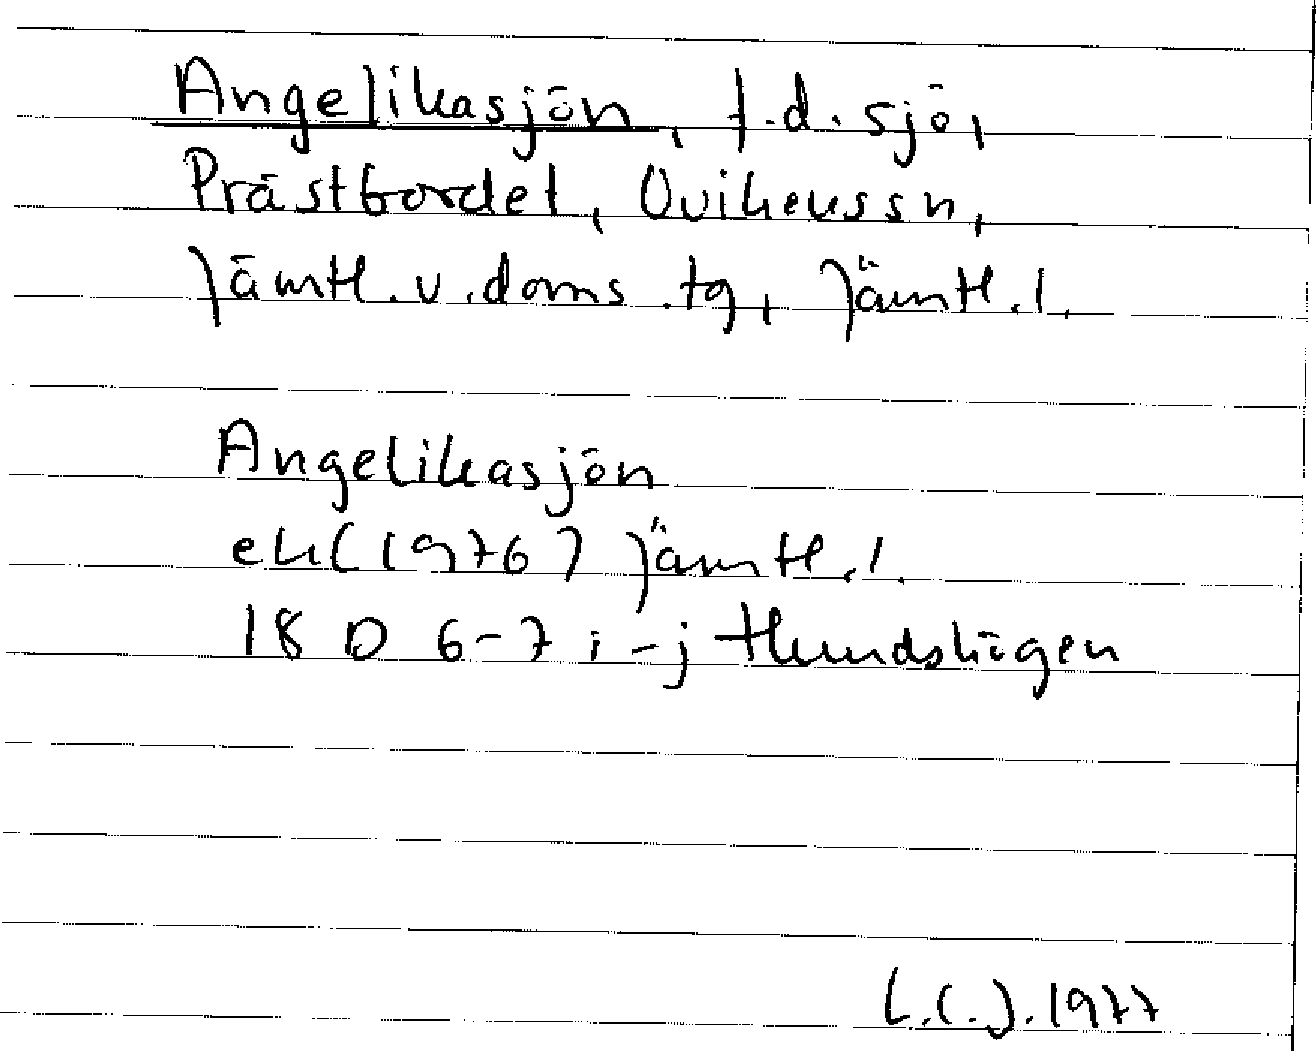 Angelikasjön, f.d. sjö,
Prästbordet, Ovikens sn,
Jämtl. v. doms. tg, Jämtl. l.
Angelikasjön
ek (1976) Jämtl. l.
18 D 6-7 i-j Hundshögen
L.C.J. 1977